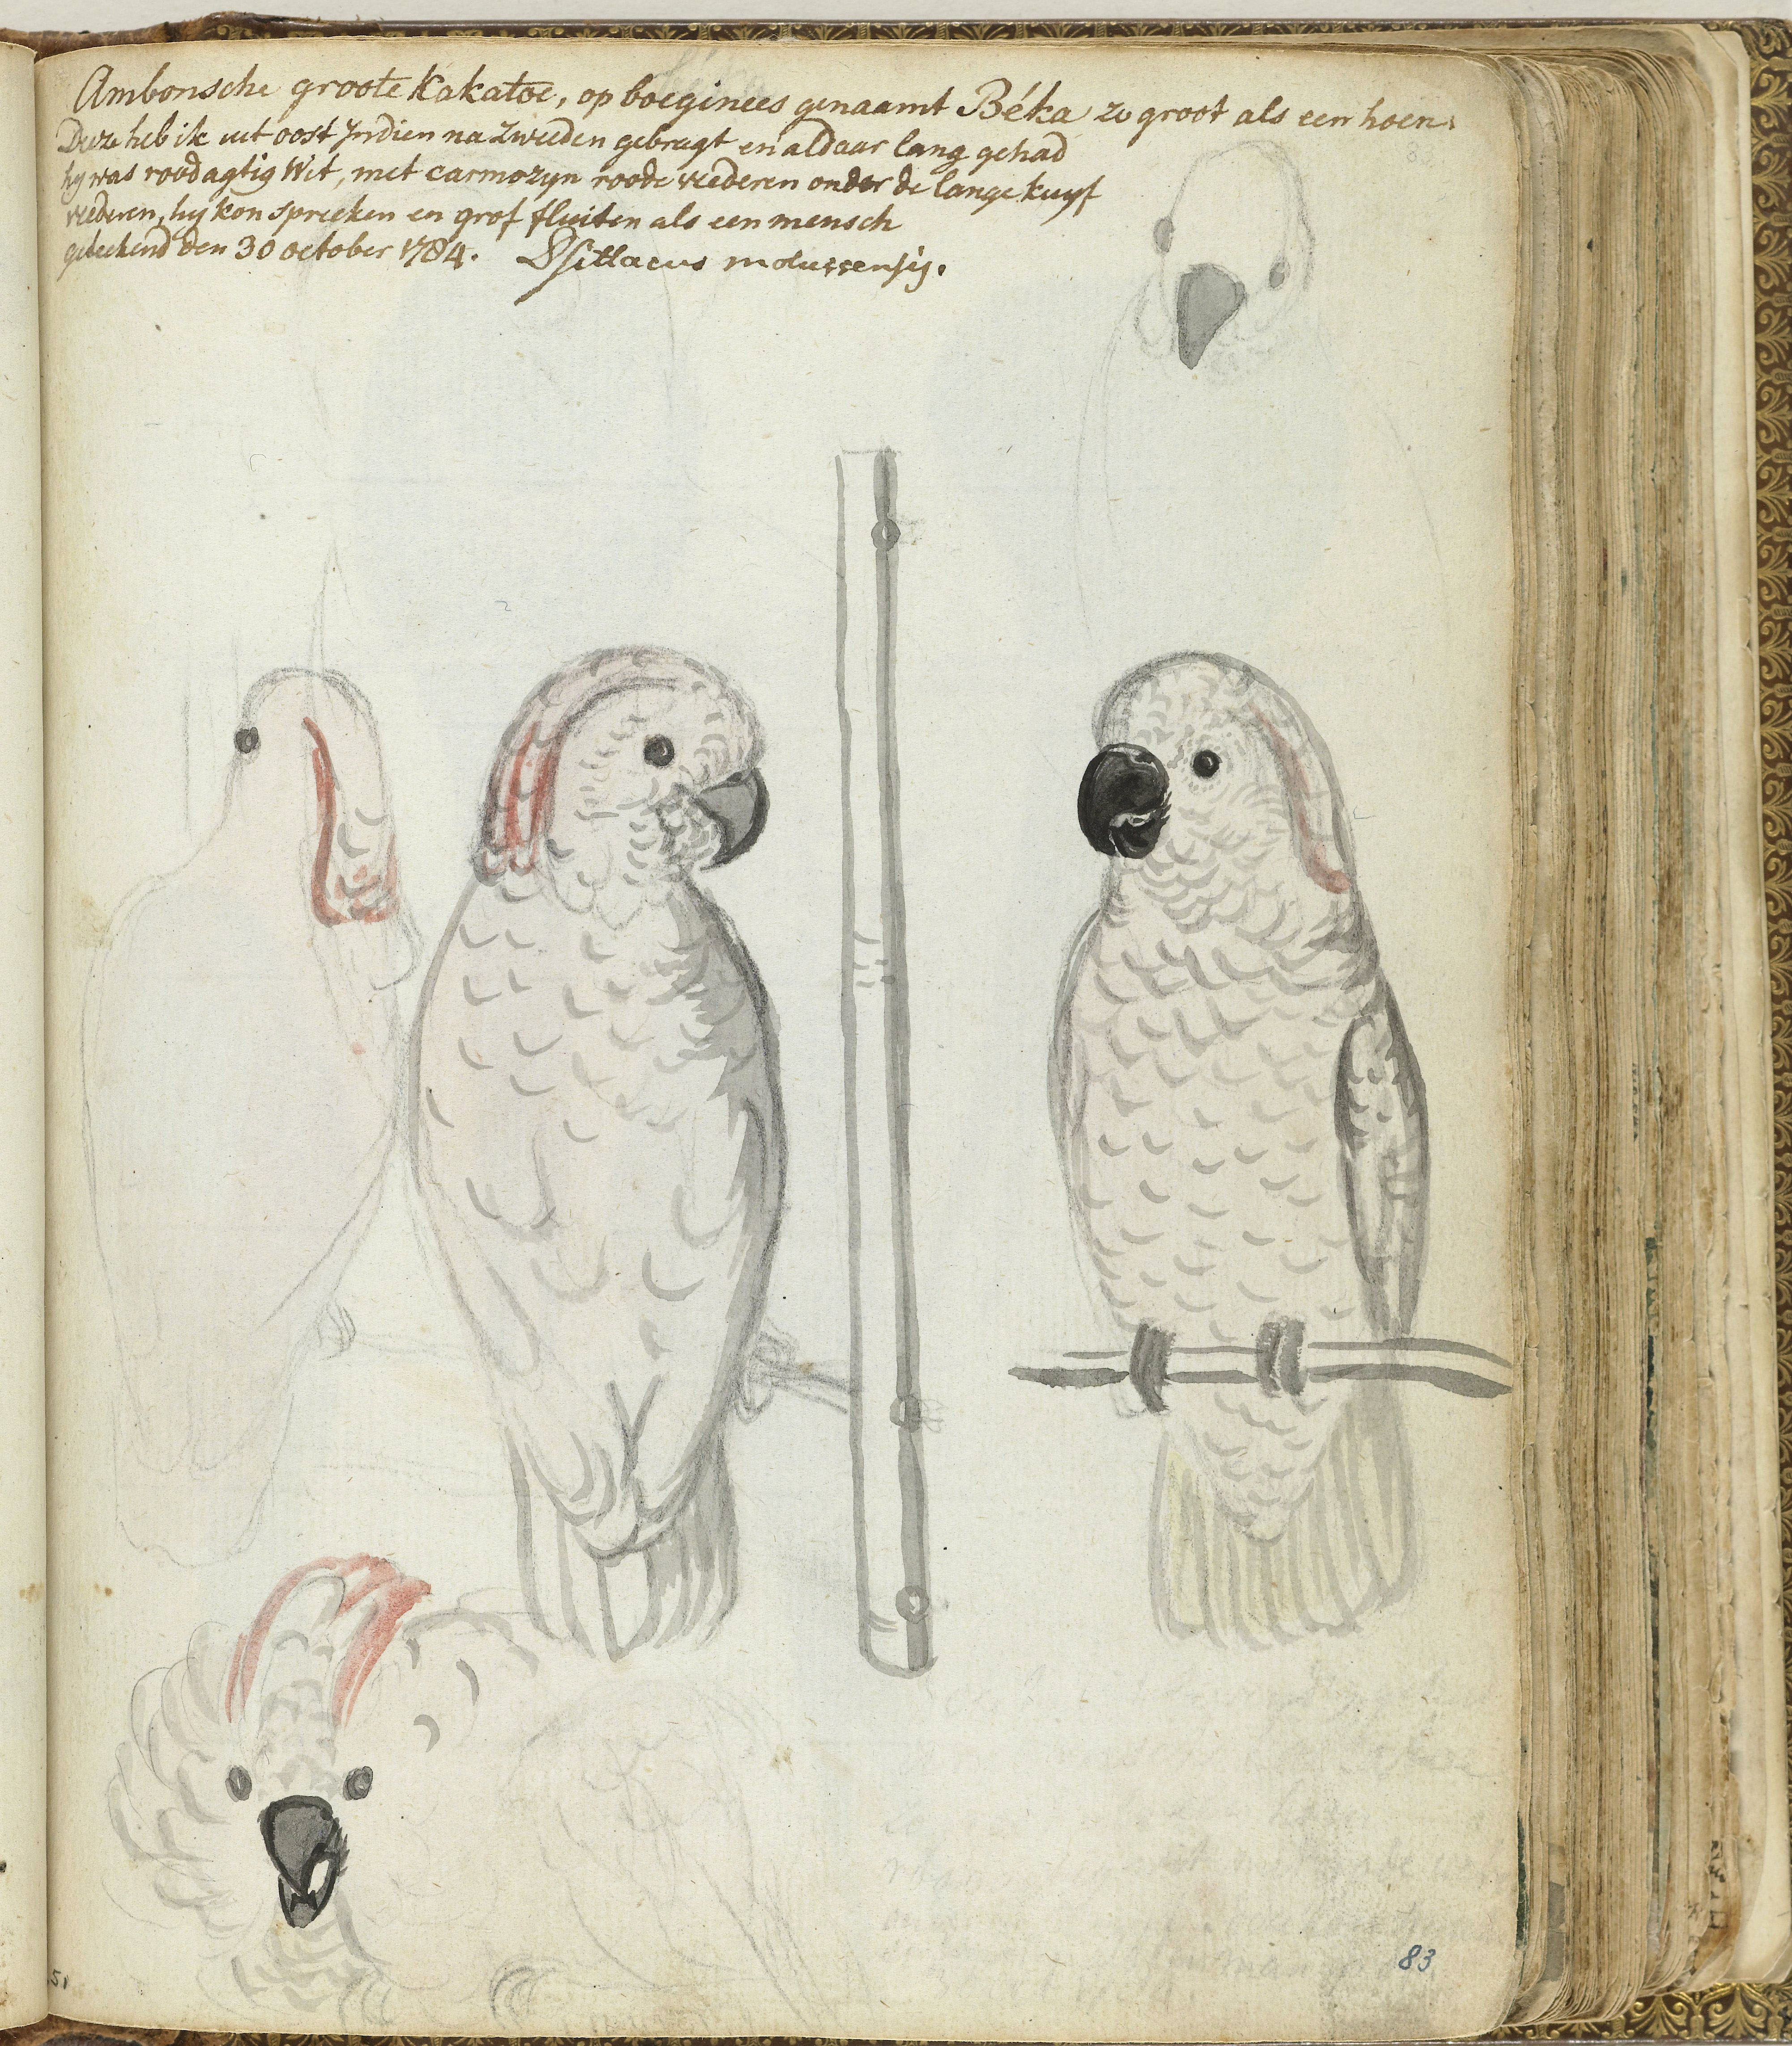 Ambonsche groote Kakatoe, op boeginees genaamt Béka zo groot als een hoen.
Deeze heb ik uit oost Jndien na Zweeden gebragt en aldaar lang gehad
hy was roodagtig Wit, met carmozyn roode veederen onder de lange kuyf
veederen, hy kon spreeken en grof fluiten als een mensch
geteekend den 30 october 1784. Psittacus moluccensis.
83